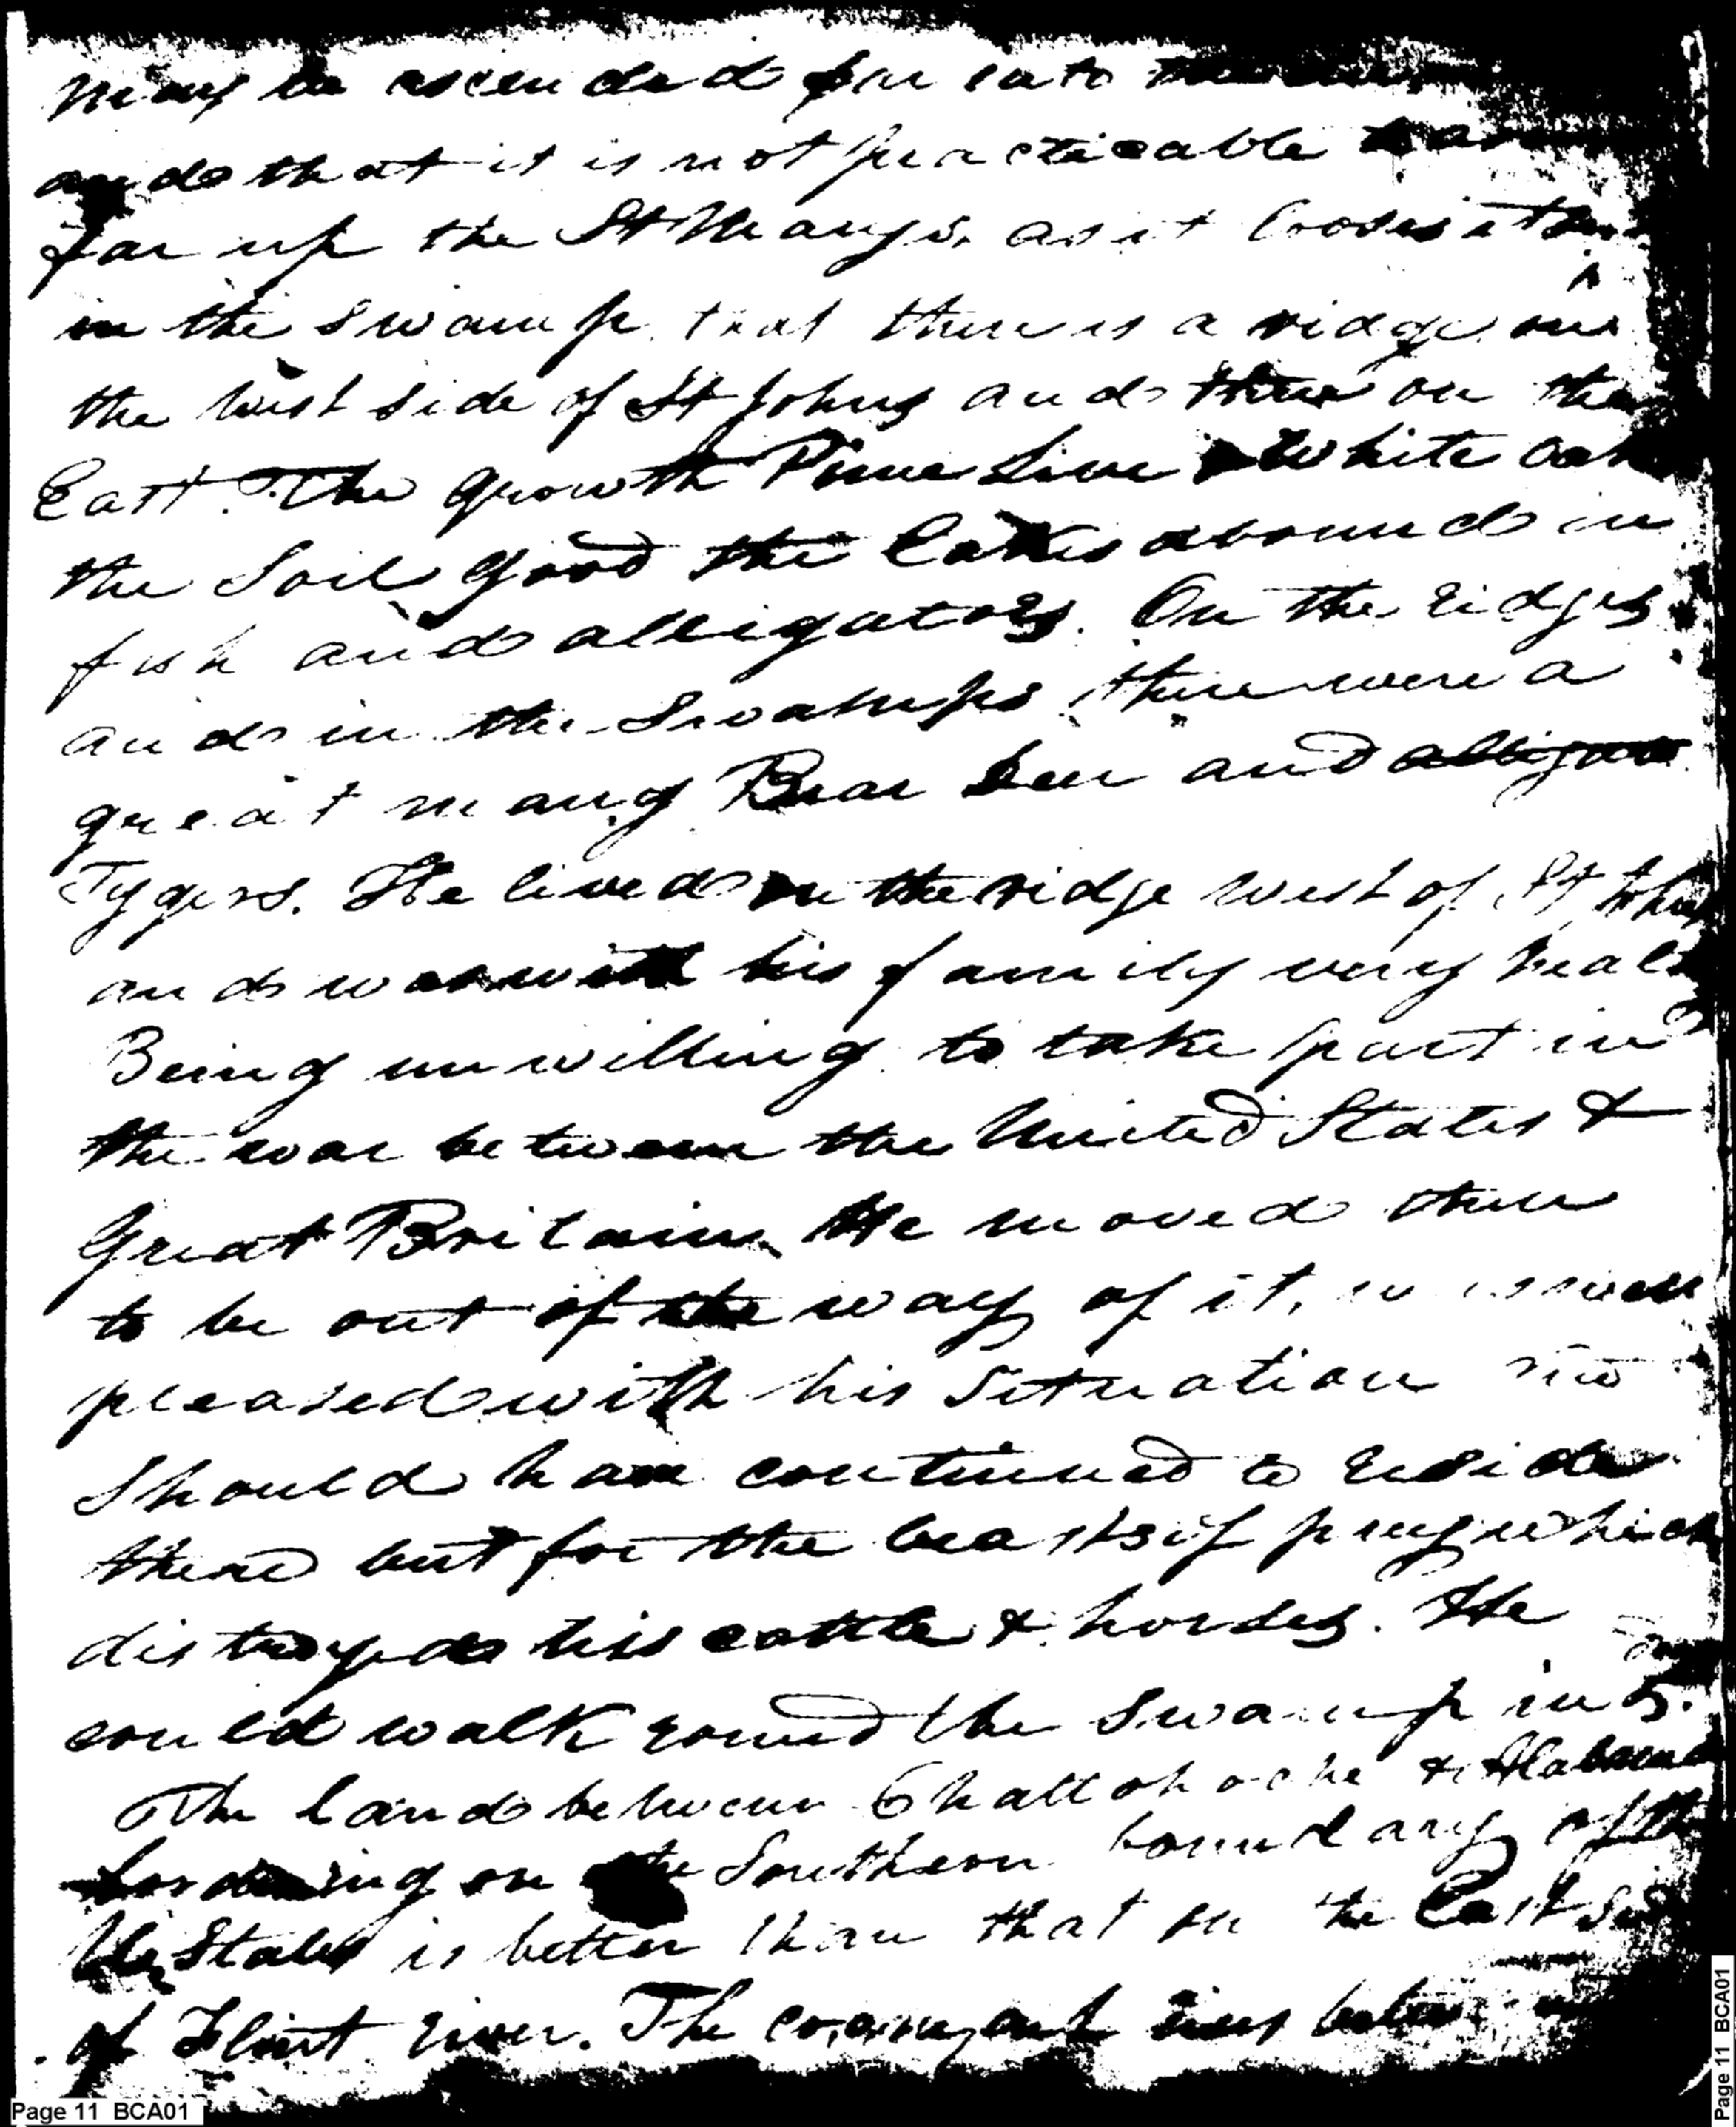 may be ascended far into the
and that it is not practicable
far up the St Marys, as it looses itself
in the swamp, that there is a ridge on
the west side of St Johns and three on the
East. The growth Pine Live & White oak
the Soil good the Lakes abound in
fish and alligators. On the ridges
and in the Swamps there were a
great many Bear Deer and
Tygers. He lived on the ridge west of St Johns
and was with his family very heal
Being unwilling to take part in
the war between the United States &
Great Britain, He moved there
to be out of the way of it, was well
pleased with his Situation and
Should have continued to reside
there but for the beasts of prey which
distroyed his cattle & horses. He
could walk round the Swamp in 5.
The land between Chattohoche & Alabama
bordering on the Southern boundary of the
U. States is better than that on the East si
of Flint river. The
Page 11 BCA01
Page 11 BCA01